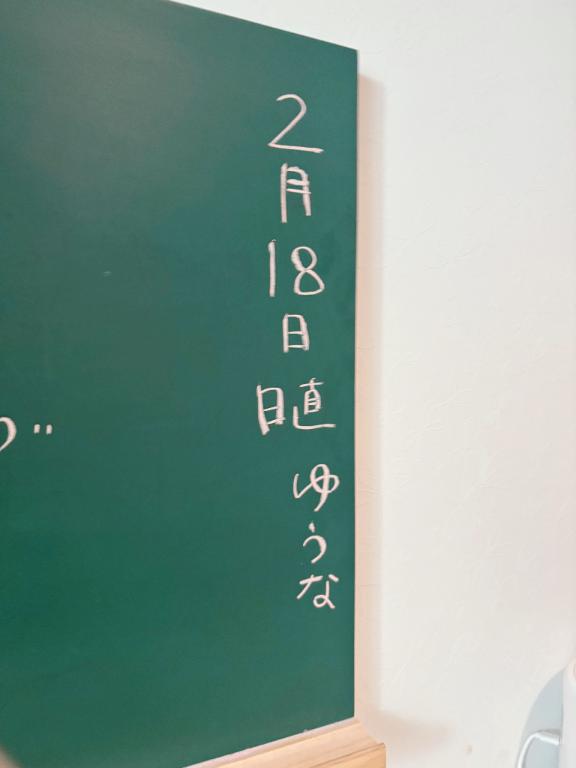 2月18日
日直
ゆうな